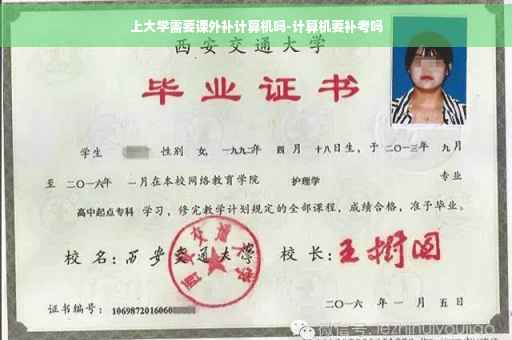 上大学需要课外补计算机吗-计算机要补考吗
西安交通大学
毕业证书
学生 性别 女,一九九二年 四 月 十八日生,于 二〇一三年 九月
至 二〇一六年 一月在本校网络教育学院 护理学 专业
高中起点专科 学习,修完教学计划规定的全部课程,成绩合格,准予毕业。
校 名:西安交通大学 校 长:王树国
证书编号:1069872016060
二〇一六 年 一 月 五 日
微信号: jezhinuiyoujiao